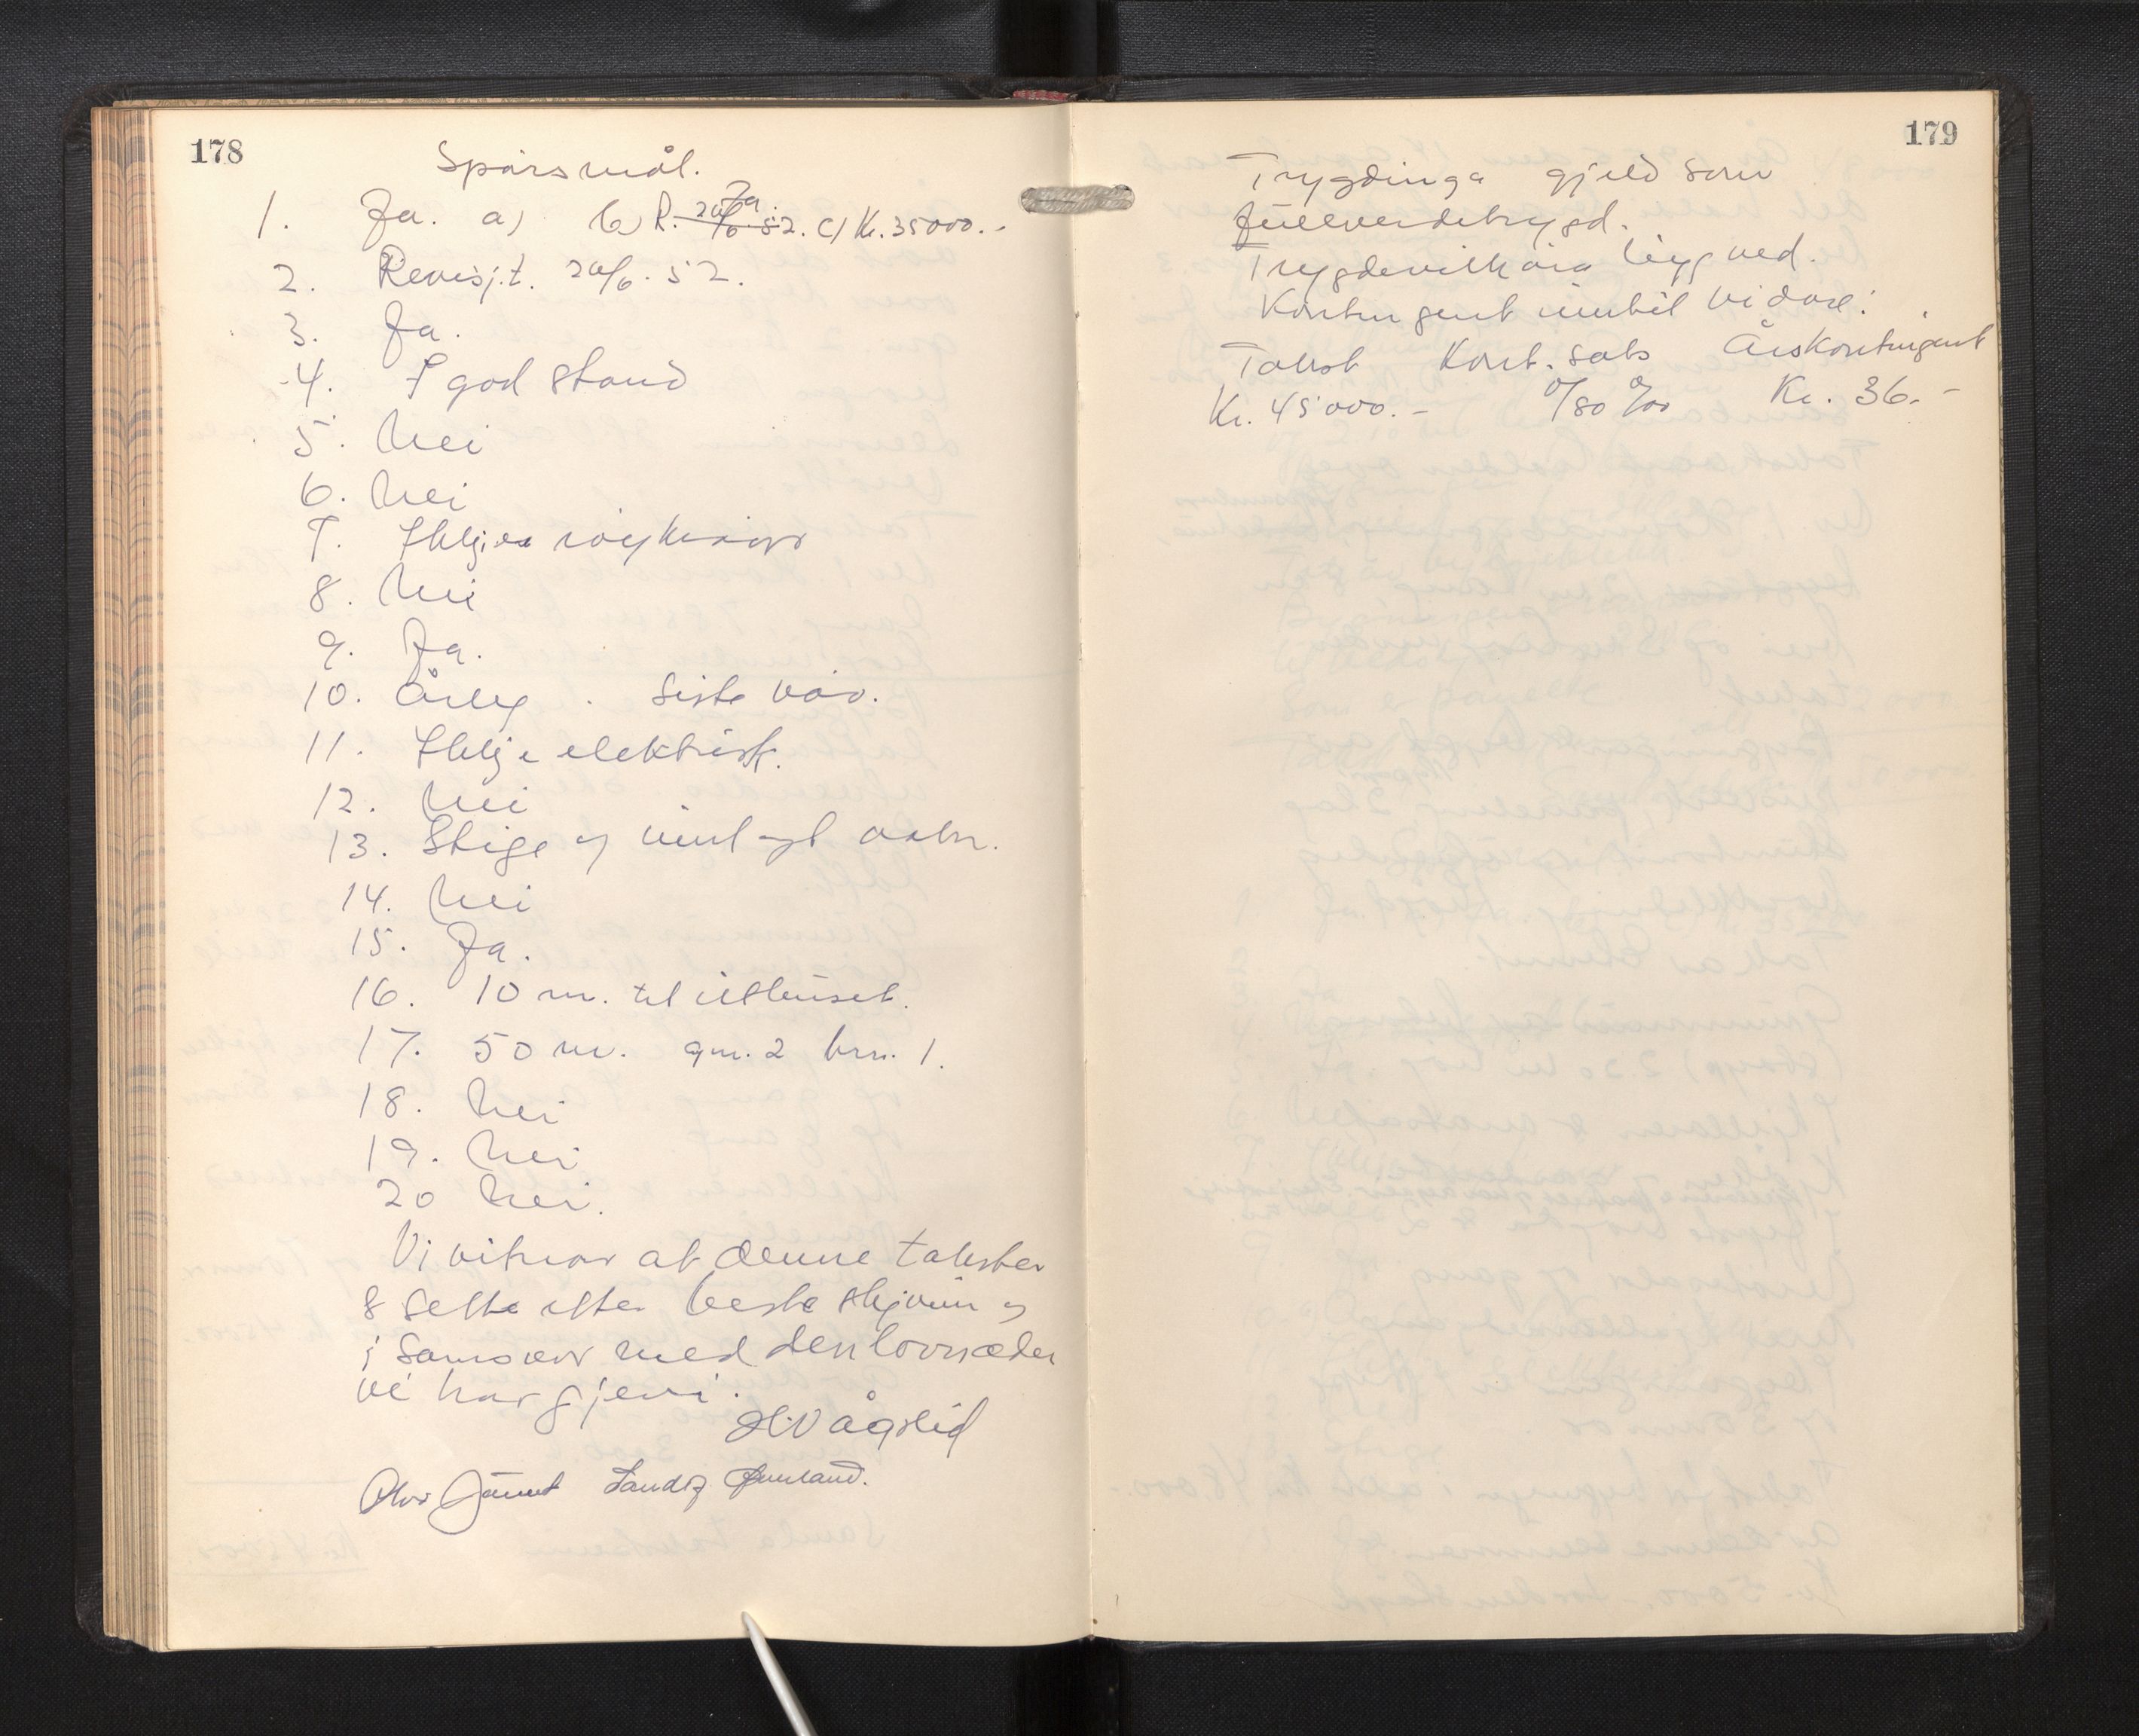 178
Spørsmål.
1. Ja. a) b) Ja. c) Kr. 35000.-
2. Revisj.t. 20/6. 52.
3. Ja.
4. I god stand
5. Nei
6. Nei
7. Ikkje røykrør
8. Nei
9. Ja.
10. Årleg. Siste vår.
11. Ikkje elektrisk.
12. Nei
13. Stige og innlagt vatn.
14. Nei
15. Ja.
16. 10 m. til uthuset.
17. 50 m. gnr. 2 brn. 1.
18. Nei
19. Nei
20 Nei.
Vi vitnar at denne taksten
e sette etter beste skjønn og
i samsvar med den lovnæden
vi har gjevi.
H Vågslid
Olav Landig
179
Trygdinga gjeld som
fullverdetrygd.
Trygdevilkåra lagg ved.
Kontingent inntil vidare:
Takst Kont. sats Årskontingent
Kr. 45000.- 0/80 ‰ Kr. 36.-